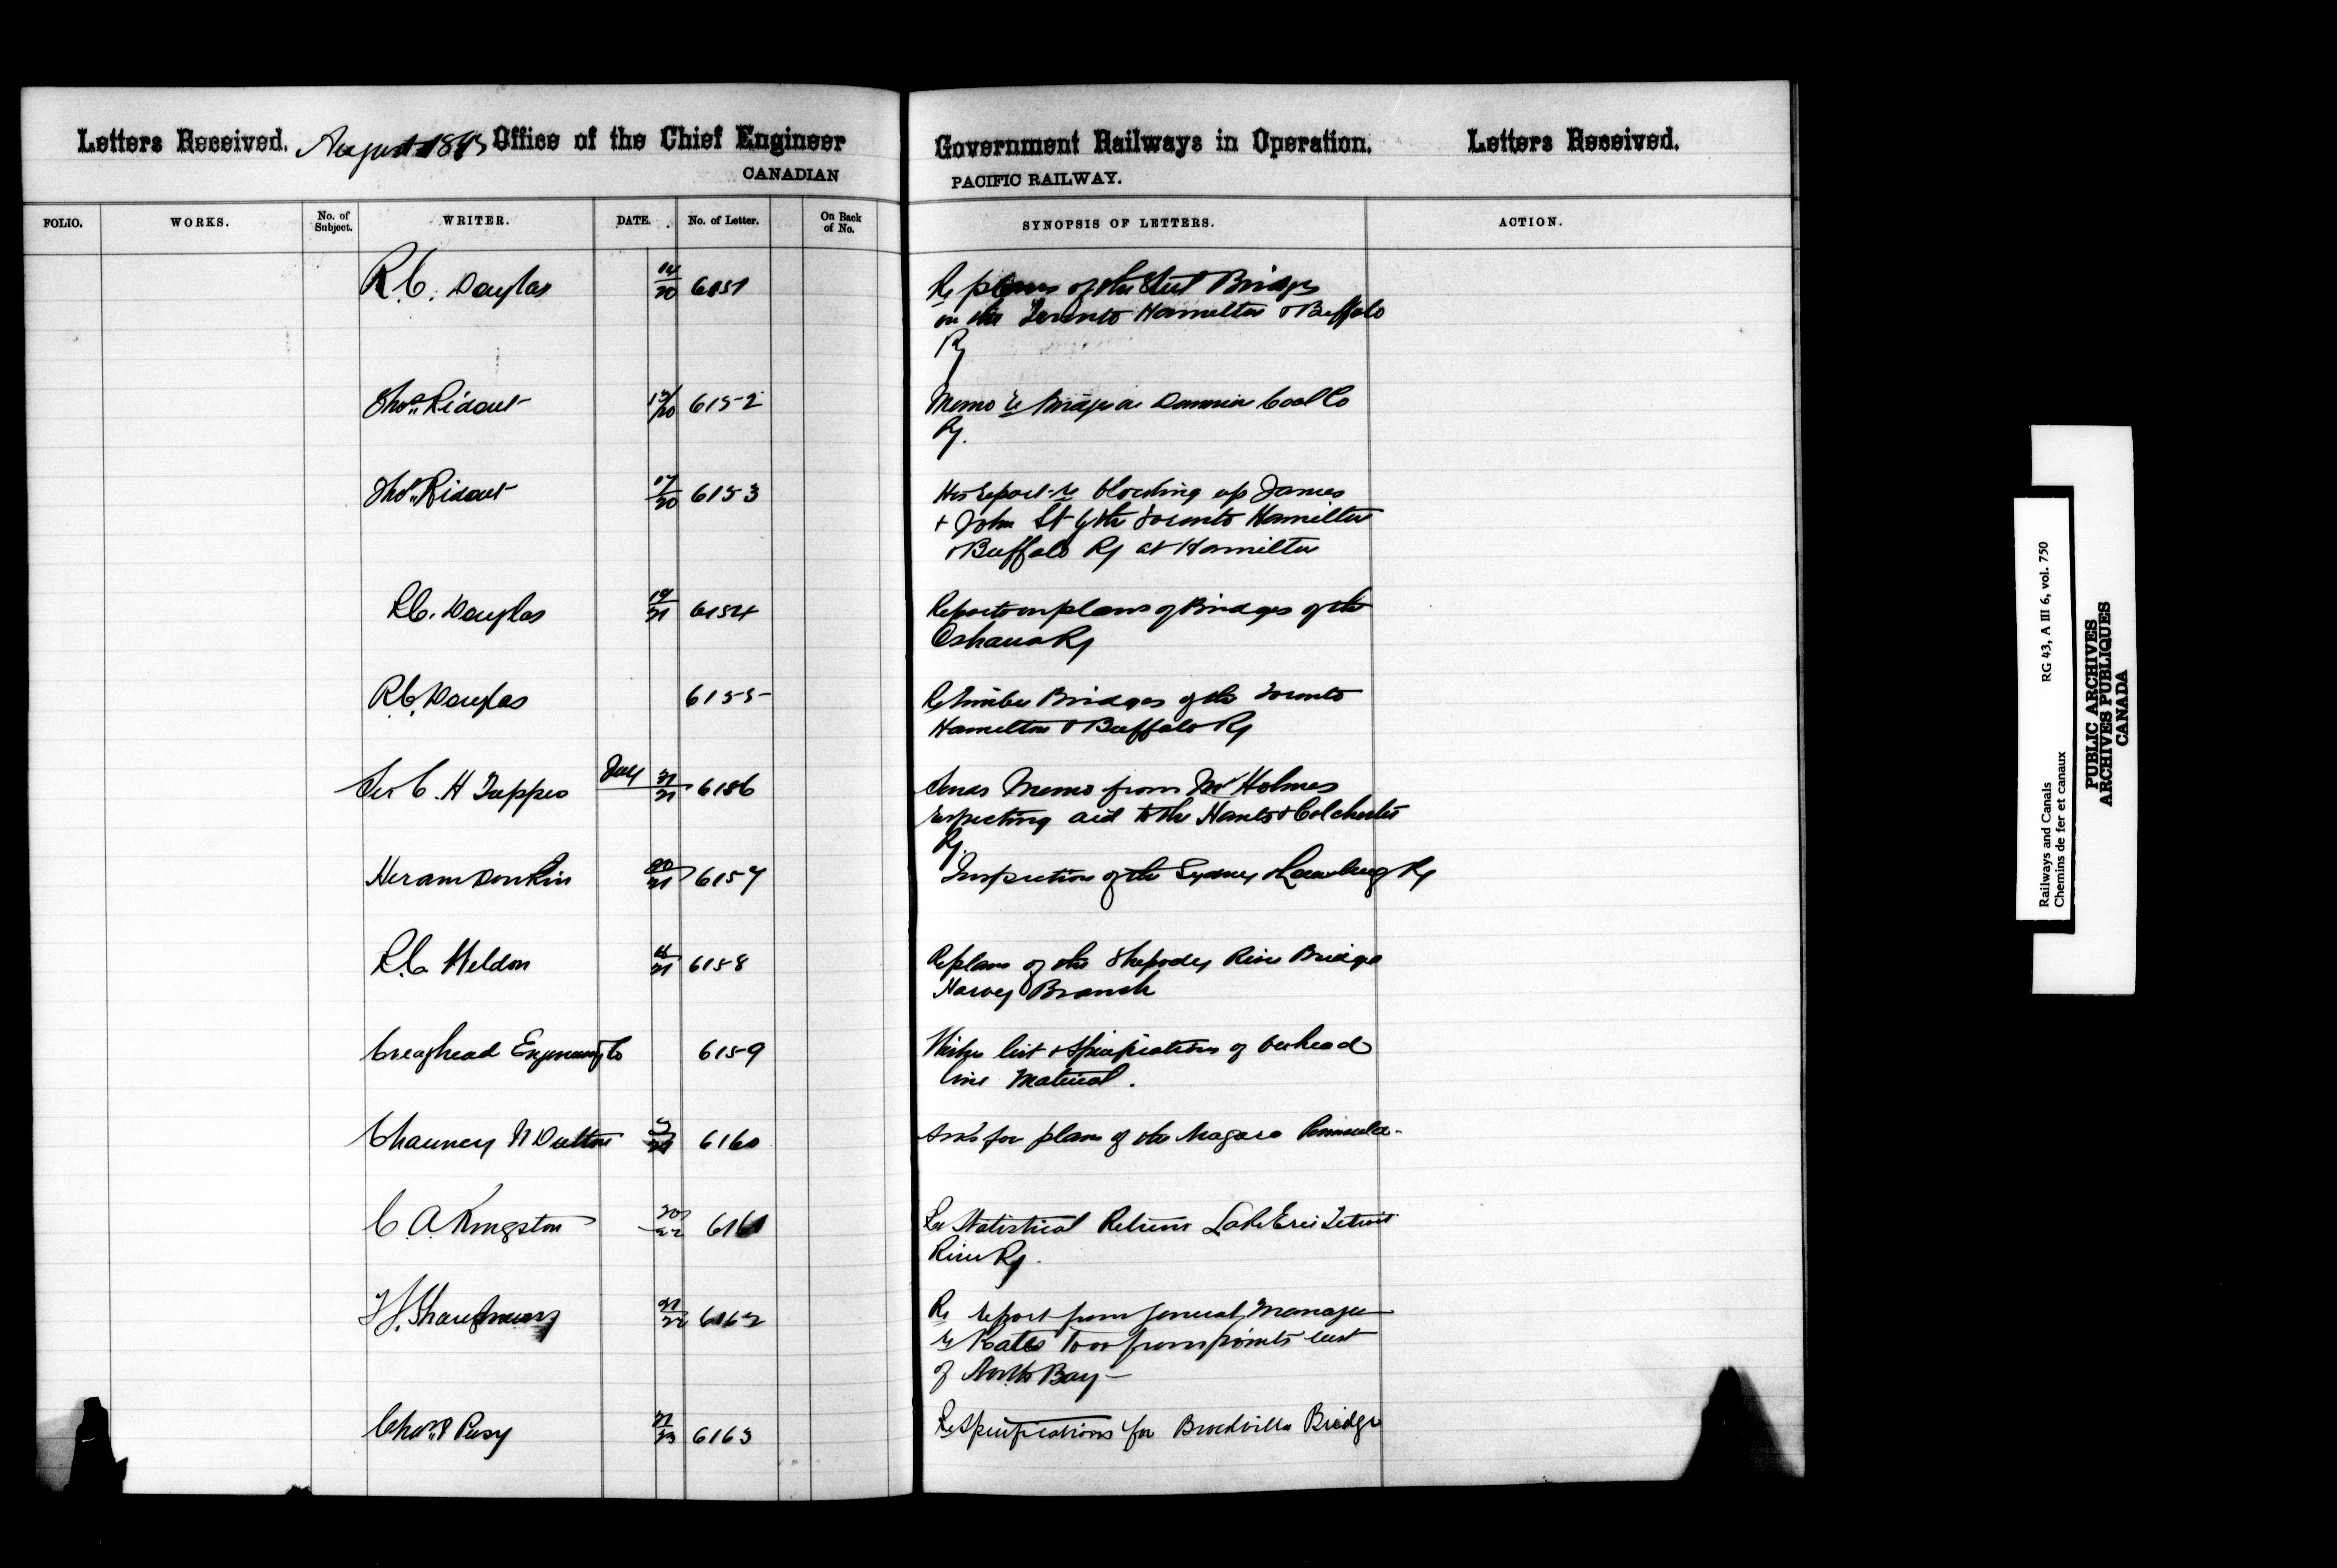 Letters Received. August 1895 Office of the Chief Engineer Government Railways in Operation. Letters Received.
CANADIAN PACIFIC RAILWAY.
FOLIO. WORKS. No. of Subject. WRITER. DATE. No. of Letter. On Back of No. SYNOPSIS OF LETTERS. ACTION.
R.C. Douglas 14/20 6151 Re plans of the Steel Bridges
on the Toronto Hamilton & Buffalo
Ry
Thos. Ridout 13/20 6152 Memo re Bridges on Dominion Coal Co
Ry.
Thos. Ridout 17/20 6153 His report re blocking up James
+ John St by the Toronto Hamilton
& Buffalo Ry at Hamilton
R.C. Douglas 19/21 6154 Reports on plans of Bridges of the
Oshawa Ry
R.C. Douglas 6155 Re timber Bridges of the Toronto
Hamilton & Buffalo Ry
Sir C. H Tupper July 31/21 6156 Sends Memo from Mr Holmes
respecting aid to the Hants & Colchester
Ry.
Hiram Donkin 20/21 6157 Inspection of the Sydney & Louisburg Ry
R.C. Weldon 21 6158 Re plans of the Shepody River Bridge
Harvey Branch
Creaghead Engineering Co 6159 Wishes list & Specifications of Overhead
line Material.
Chauncy N Dutton 6160 Asks for plan of the Niagara Peninsula-
C. A. Kingston 20/22 6161 Statistical Returns Lake Erie Detroit
River Ry.
T.G. Shaughnessy 21/22 6162 Re report from General Manager
re Rates from points east
of North Bay -
Chas. P Pusy 21/23 6163 Re Specifications for Brockville Bridge
Railways and Canals RG 43, A III 6, vol. 750
Chemins de fer et canaux
PUBLIC ARCHIVES
ARCHIVES PUBLIQUES
CANADA